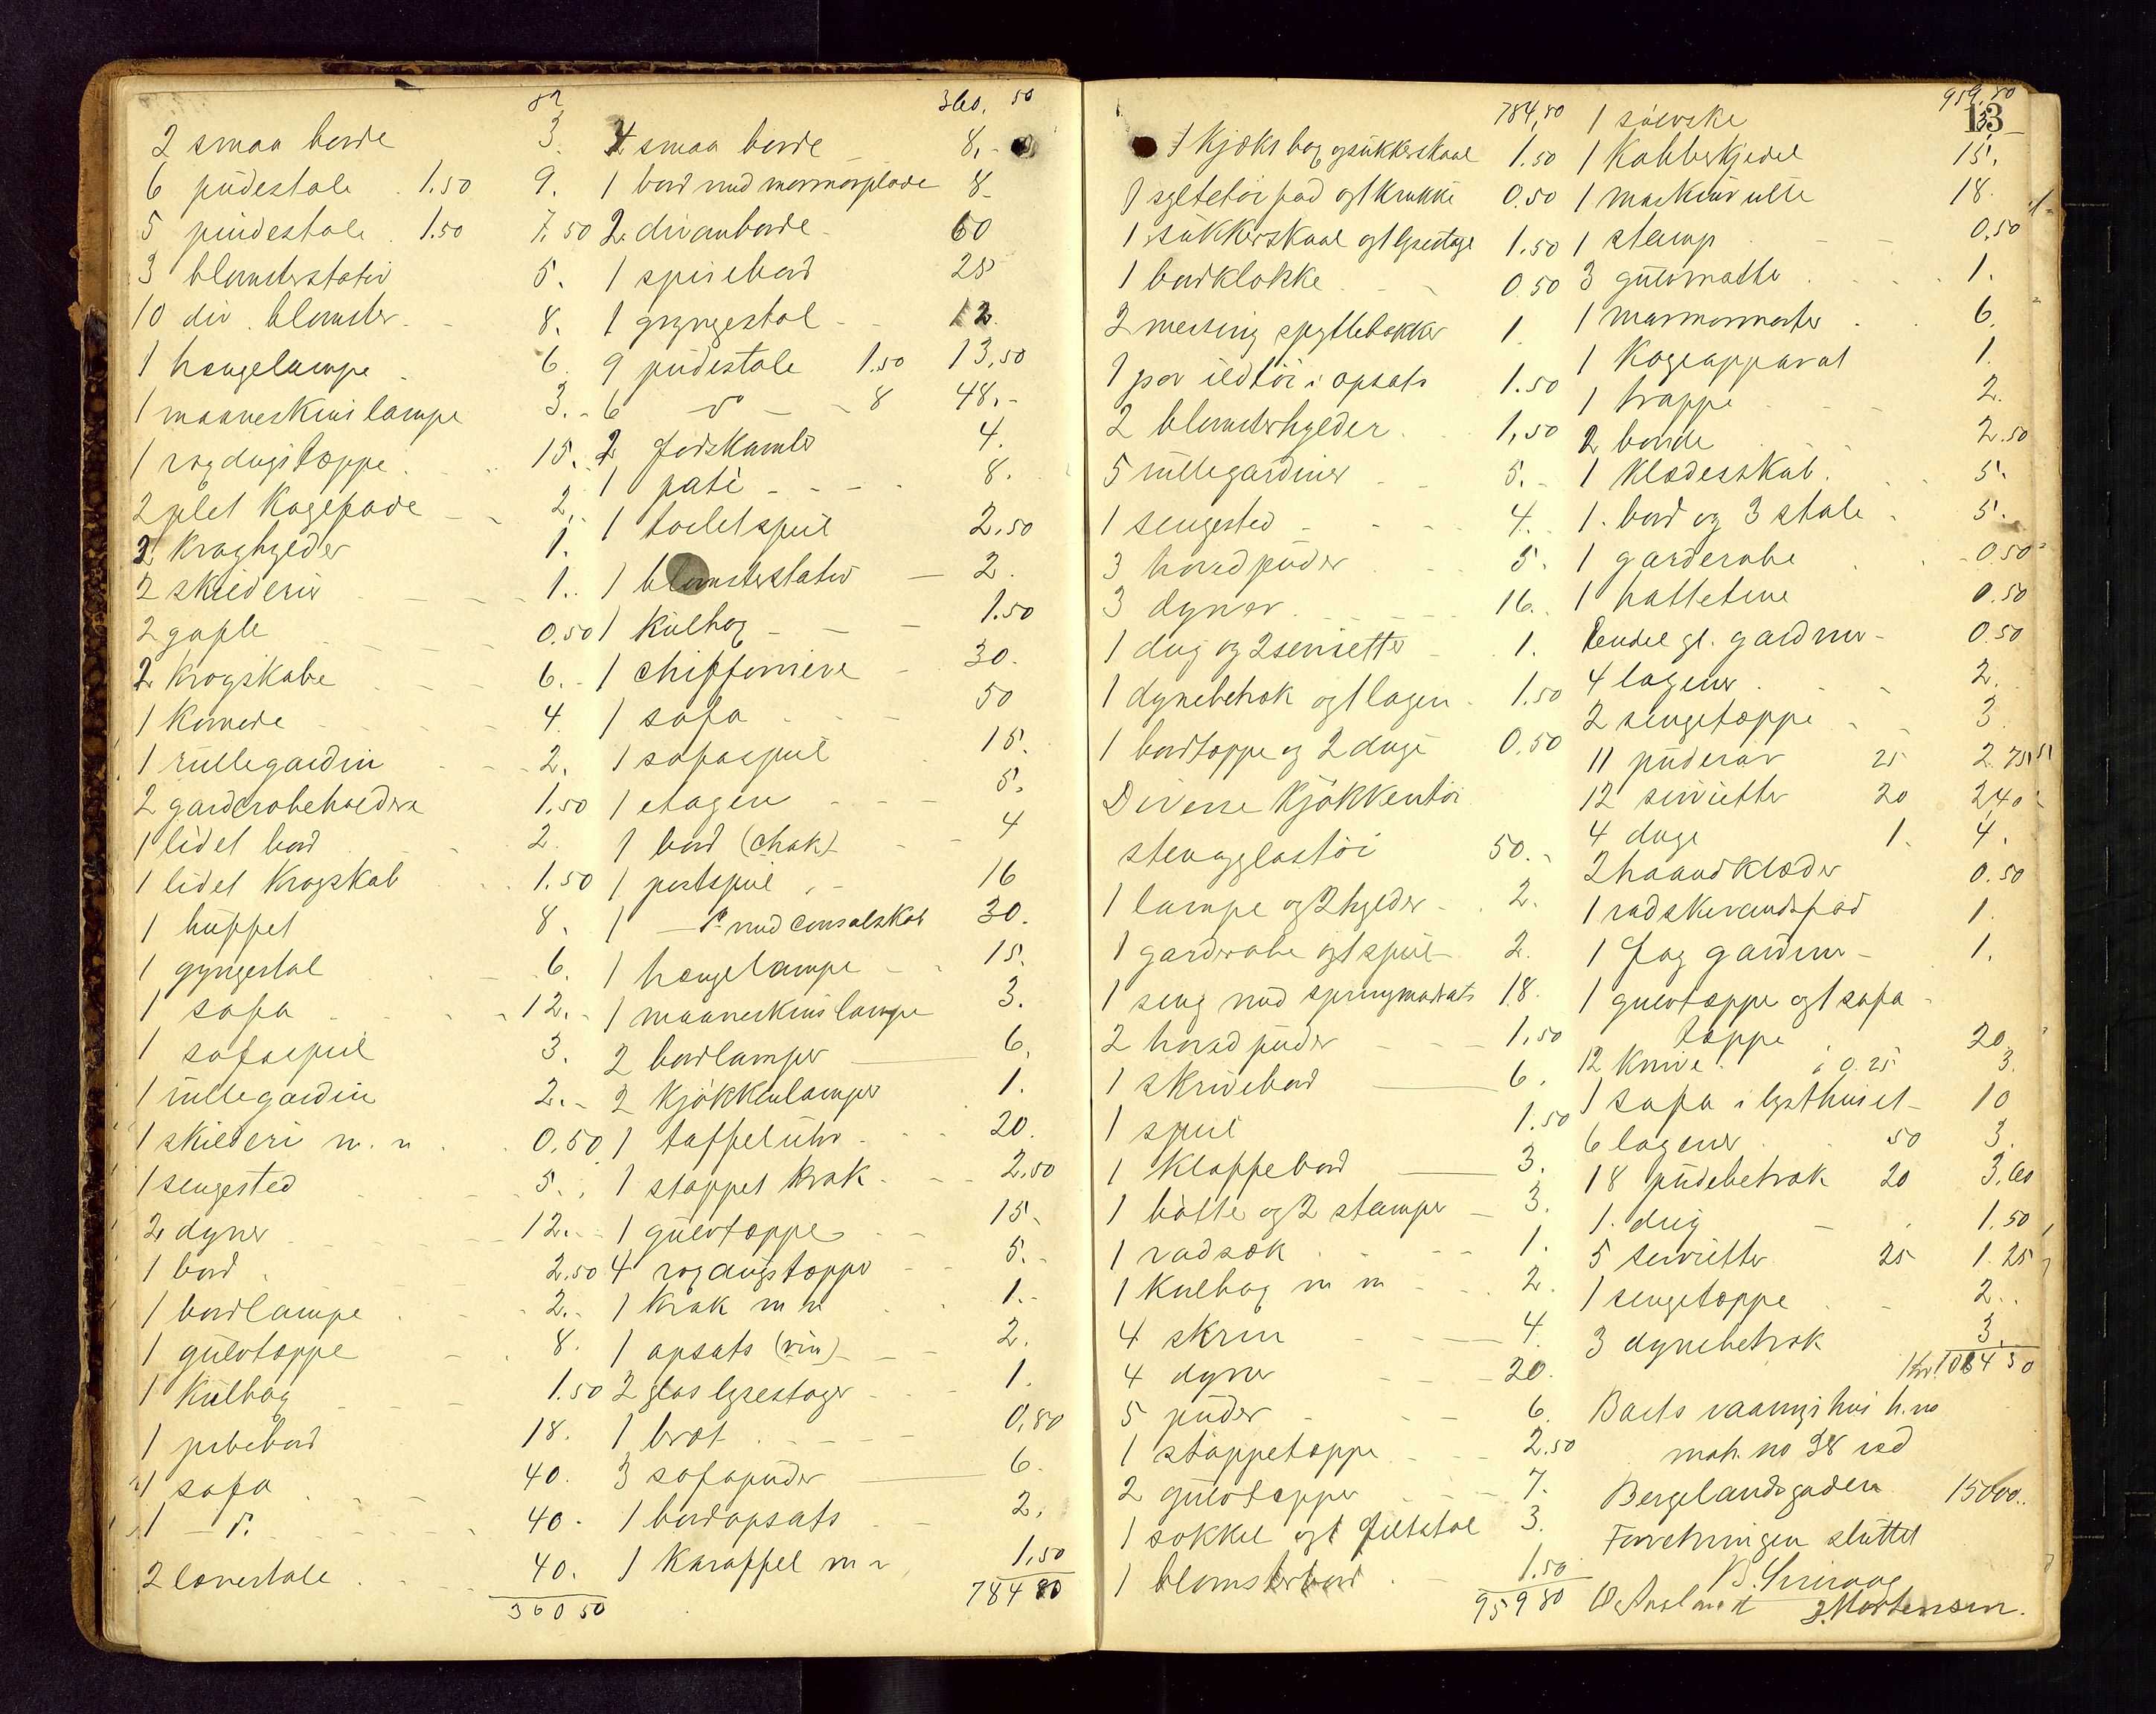 82
2 smaa borde 3.
6 pudestole 1.50 9.
5 pindestole 1.50 7.50
3 blomsterstativ 5.
10 div. blomster 8.
1 hængelampe 6.
1 maaneskinslampe 3.
1 vogdugstæppe 15.
2 plet Kagefade 2.
2 Kraghylder 1.
2 skilderier 1.
2 gafle 0.50
2 Krogskabe 6.
1 Komode 4.
1 rullegardin 2.
2 garderobeholdere 1.50
1 lidet bord 2.
1 lidet Krogskab 1.50
1 buffet 8.
1 gyngestol 6.
1 sofa 12.
1 sofaspeil 3.
1 rullegardin 2.
1 skilderi m.m. 0.50
1 sengested 5.
2 dyner 12.
1 bord 2.50
1 bordlampe 2.
1 gulvtæppe 8.
1 Kulbox 1.50
1 pibebord 18.
1 sofa 40.
1 – do. 40.
2 lænestole 40.
360 50
360. 50
4 smaa borde 8.
1 bord med marmorplade 8
2 divanborde 60
1 spisebord 25
1 gyngestol 12
9 pudestole 1.50 13.50
6 do 8 48.
2 fodskamler 4.
1 paté 8.
1 toiletspeil 2.50
1 blomsterstativ 2.
1 Kulbox 1.50
1 chiffoniere 30.
1 sofa 50
1 sofaspeil 15.
1 etagere 5.
1 bord (chak) 4
1 postspeil 16
1 – do med consolskab 30.
1 hængelampe 15.
1 maaneskinslampe 3.
2 bordlamper 6.
2 Kjøkkenlamper 1.
1 taffeluhr 20.
1 stoppet Krak 2.50
1 gulvtæppe 15.
4 vogdugstæpper 5.
1 Krak m m 1.
1 opsats (vin) 2.
2 glas lysestager 1.
1 bræt 0.80
3 sofapuder 6.
1 bordopsats 2.
1 Karaffel m m 1.50
784 80
784,80
1 Kjæksbox og sukkerskaal 1.50
1 syltetøifad og 1 krukke 0.50
1 sukkerskaal og 1 lysestage 1.50
1 bordklokke 0.50
2 messing spyttebakker 1.
1 par ildtøi i opsats 1.50
2 blomsterhylder 1,50
5 rullegardiner 5.
1 sengested 4.
3 hovedpuder 5.
3 dyner 16.
1 dug og 2 servietter 1.
1 dynebetræk og 1 lagen 1.50
1 bordtæppe og 2 duge 0.50
Diverse Kjøkkentøi
sten og glastøi 50.
1 lampe og 2 hylder 2.
1 garderobe og 1 speil 2.
1 seng med springmadrats 18.
2 hovedpuder 1,50
1 skrivebord 6.
1 speil 1.50
1 Klappebord 3.
1 bøtte og 2 stamper 3.
1 vadsæk 1.
1 Kulbox m m 2.
4 skrin 4.
4 dyner 20.
5 puder 6.
1 stoppetæppe 2.50
2 gulvtæpper 7.
1 sokkel og 1 feltstol 3.
1 blomsterbord 1.50
959 80
959.80
13
1 Kobberkjedel 15.
1 maskinrulle 18.
1 stamp 0.50
3 gulvmatter 1.
1 marmormorter 6.
1 Kogeapparat 1.
1 trappe 2.
2 borde 2.50
1 Klædesskab 5.
1 bord og 3 stole 5.
1 garderobe 0.50
1 hattetine 0.50
Endel gl. gardiner 0.50
4 lagener 2.
2 sengetæppe 3.
11 pudevar 25 2.75
12 servietter 20 240
4 duge 1. 4.
2 haandklæder 0.50
1 vadskevandsfad 1.
1 fag gardiner 1.
1 gulvtæppe og 1 sofa-
tæppe 20.
12 Knive á 0.25 3.
1 sofa i lysthuset 10
6 lagener 50 3.
18 pudebetræk 20 3,60
1 dug 1.50
5 servietter 25 1.25
1 sengetæppe 2.
3 dynebetræk 3.
Kr. 1084 30
Boets vaaningshus h.no
mat. no 38 ved
Bergelandsgaden 15000.
Forretningen sluttet
J. Mortensen.